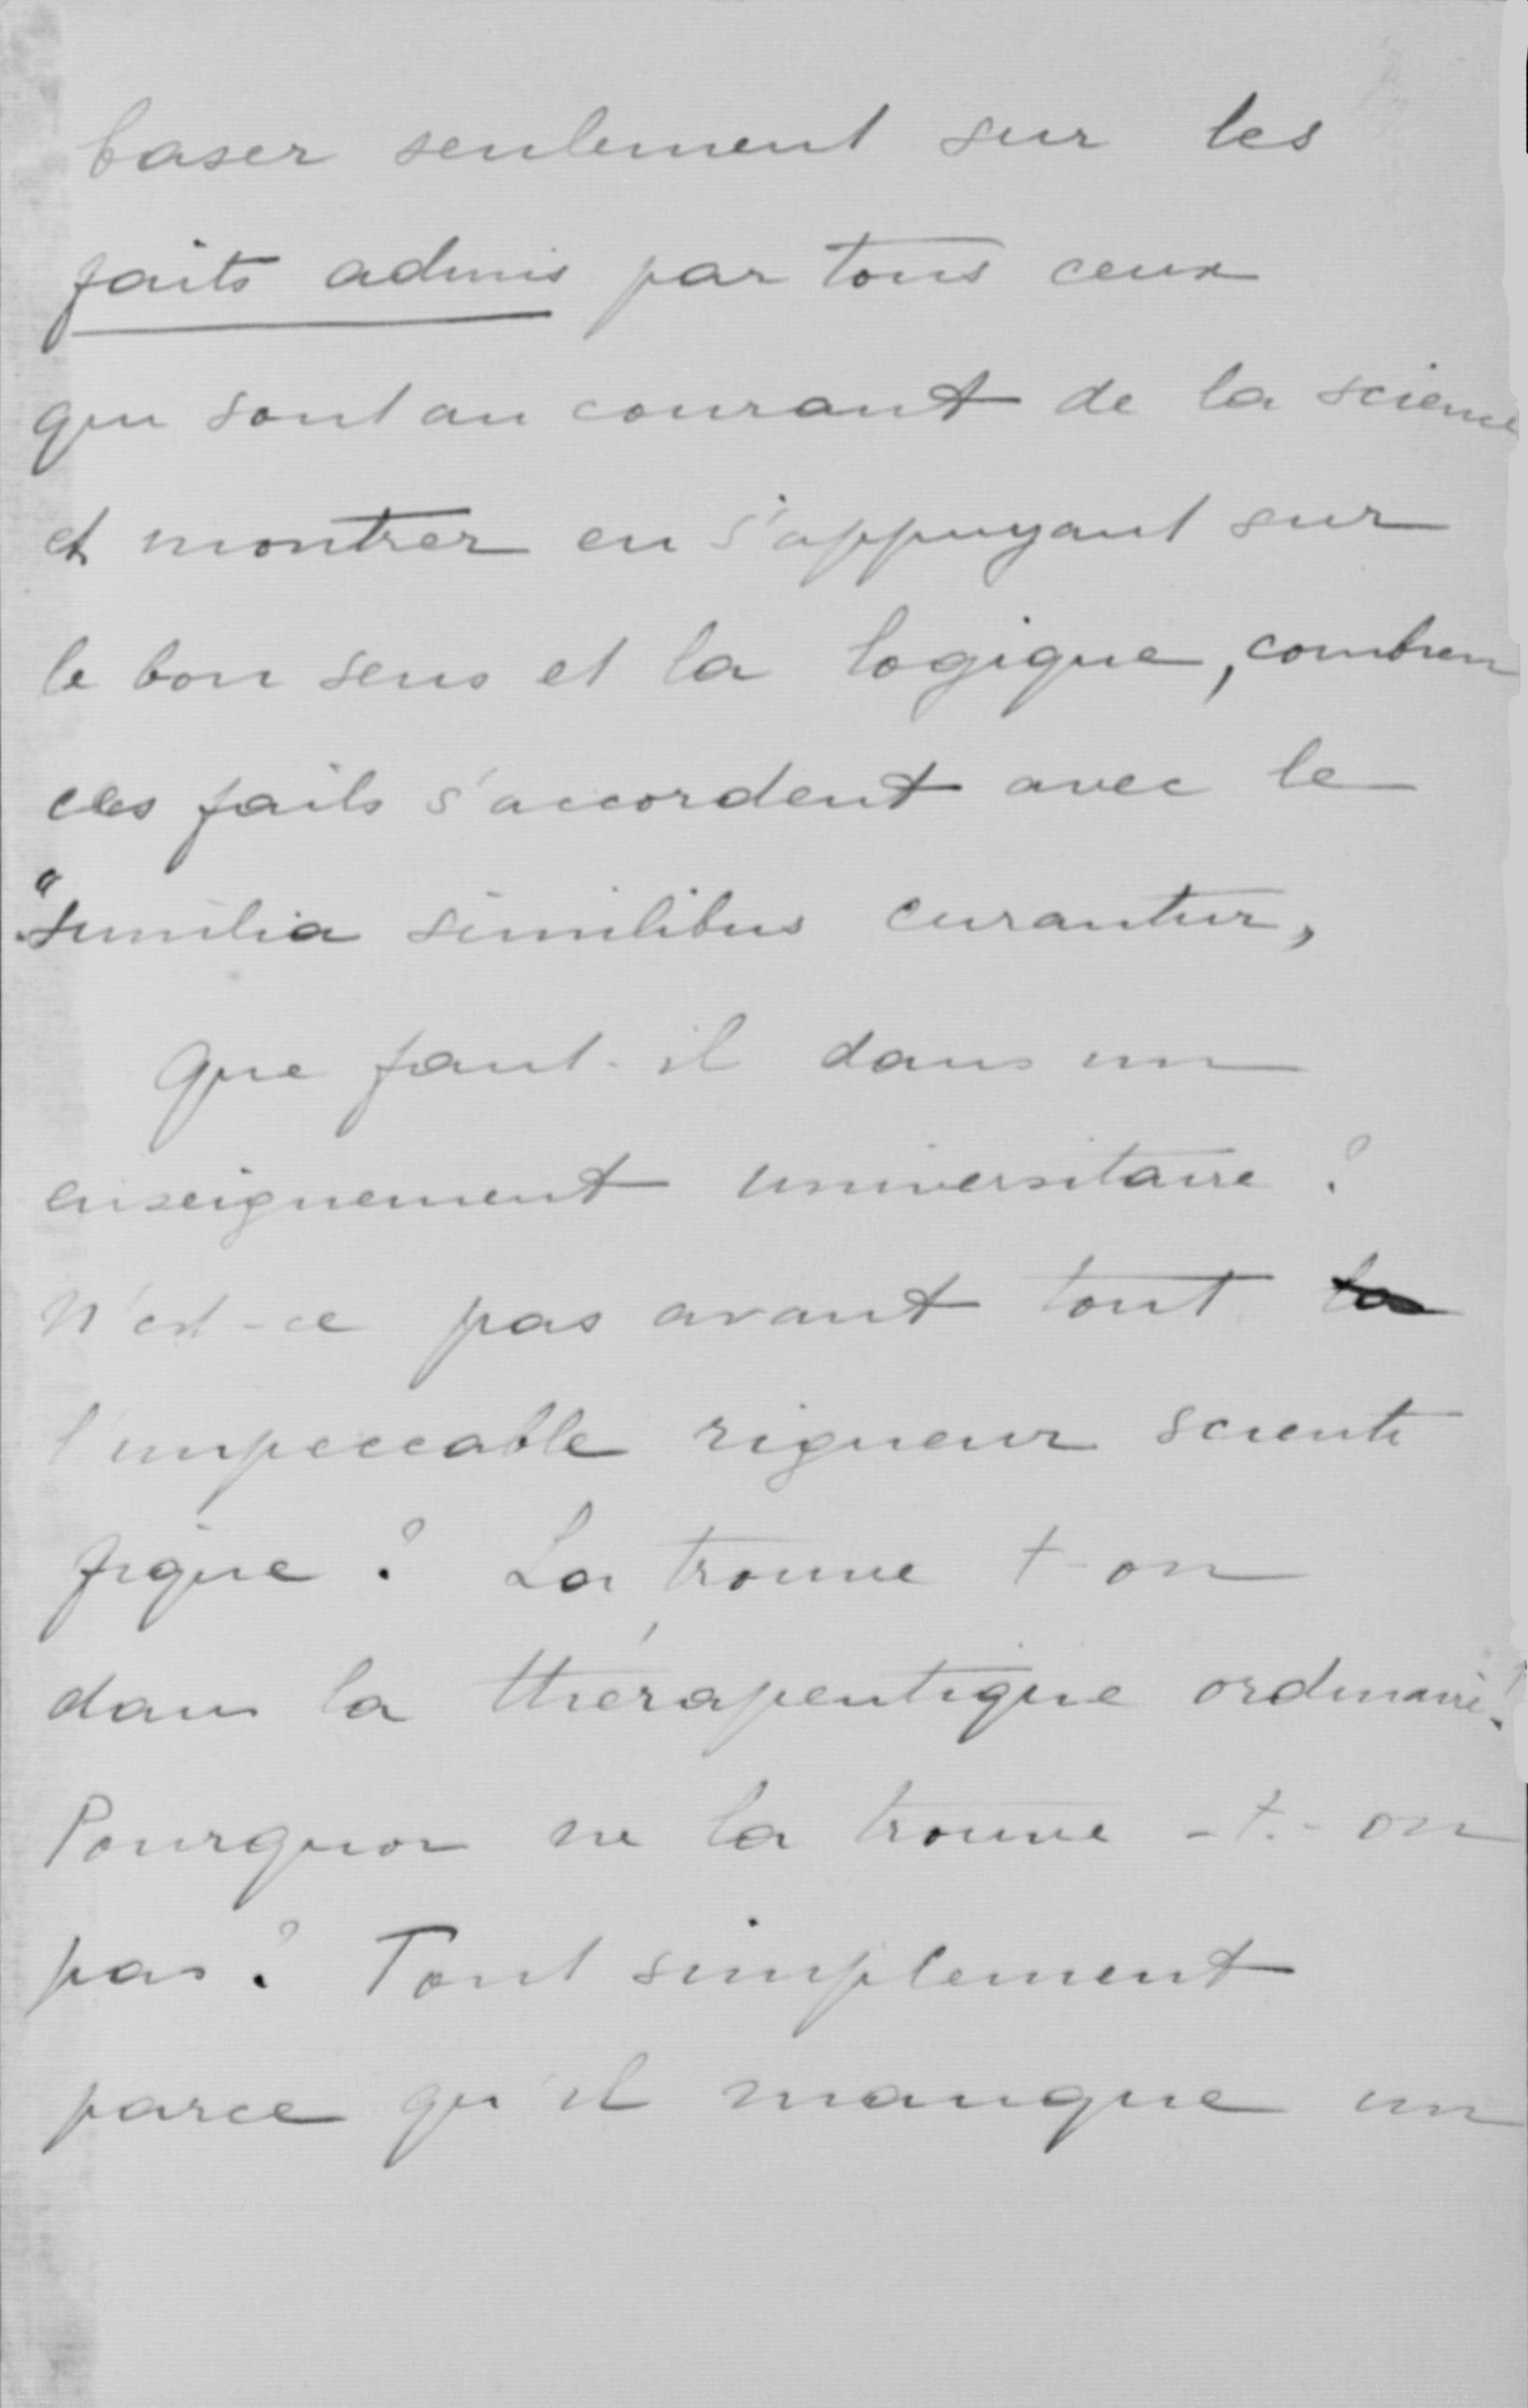 baser seulement sur les
faits admis par tous ceux
qui sont au courant de la science
et montrer en s'appuyant sur
le bon sens et la logique, combien
ces faits s'accordent avec le
"similia similibus curantur,
Que faut-il dans un
enseignement universitaire ?
N'est-ce pas avant tout la
l'impeccable rigueur scienti
fique ? La trouve t-on
dans la thérapeutique ordinaire?
Pourquoi ne la trouve -t-on
pas ? Tout simplement
parce qu'il manque un